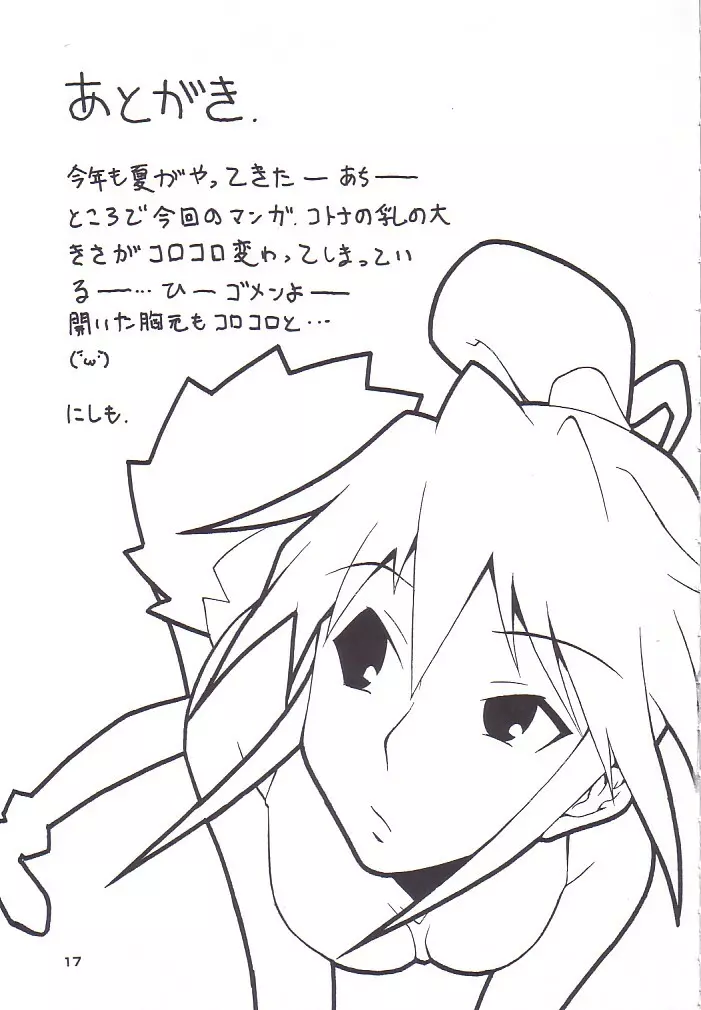 あとがき.
今年も夏がやってきたー あぢー
ところで今回のマンガ. コトナの乳の大
きさがコロコロ変わってしまってい
るー… ひー ゴメンよー
開いた胸元もコロコロと…
(･ω･)
にしも.
17